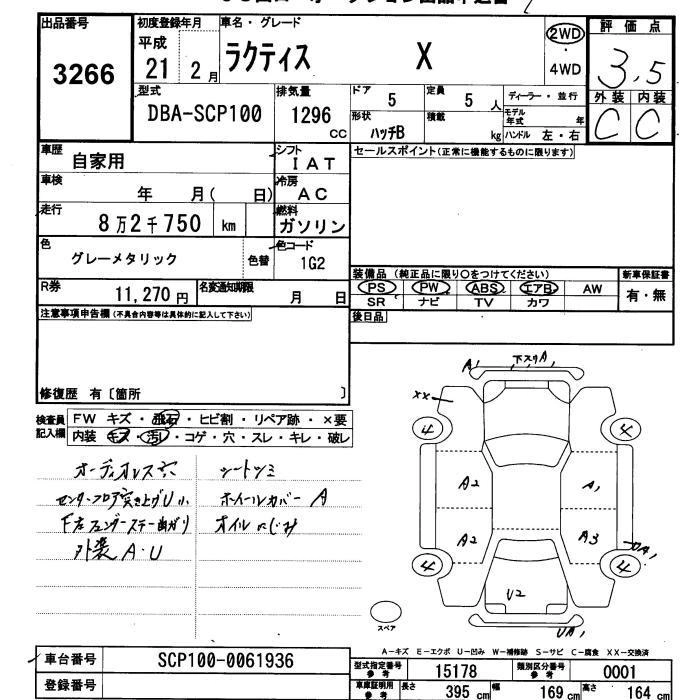 出品番号
3266
初度登録年月
平成
21 2月
車名・グレード
ラクティス X
2WD
・
4WD
評価点
3.5
外装 内装
C C
型式
DBA-SCP100
排気量
1296
CC
ドア
5
定員
5 人
ディーラー・並行
形状
ハッチB
積載
kg
モデル年式 年
ハンドル 左・右
車歴
自家用
シフト
IAT
セールスポイント(正常に機能するものに限ります)
車検
年 月( 日)
冷房
AC
走行
8万2千750 km
燃料
ガソリン
色
グレーメタリック
色替
色コード
1G2
装備品 (純正品に限り○をつけてください)
新車保証書
PS PW ABS エアB AW
有・無
SR ナビ TV カワ
R券
11,270円
名変通知期限
月 日
後日品
注意事項申告欄(不具合内容等は具体的に記入して下さい)
修復歴 有〔箇所 〕
検査員
記入欄
FW キズ・飛石・ヒビ割・リペア跡・×要
内装 キズ・汚レ・コゲ・穴・スレ・キレ・破レ
オーディオレス穴
シートシミ
センターフロア突き上げU小
ホイールカバーA
F左フェンダーステー曲がり
オイルにじみ
外装A・U
A1 下スリA1
XX
4 4
A2 A1
A2 A3
A1
4 4
U2
UA1
スペア
A−キズ E−エクボ U−凹み W−補修跡 S−サビ C−腐食 XX−交換済
車台番号
SCP100-0061936
登録番号
型式指定番号
参考
15178
類別区分番号
参考
0001
車庫証明用
参考
長さ 395 cm
幅 169 cm
高さ 164 cm